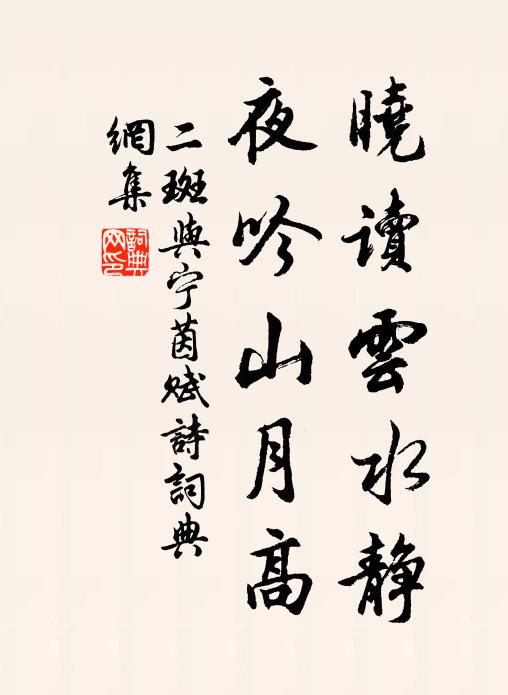 曉讀雲水靜
夜吟山月高
二斑與宁茵賦詩詞典
網集
詞典網印